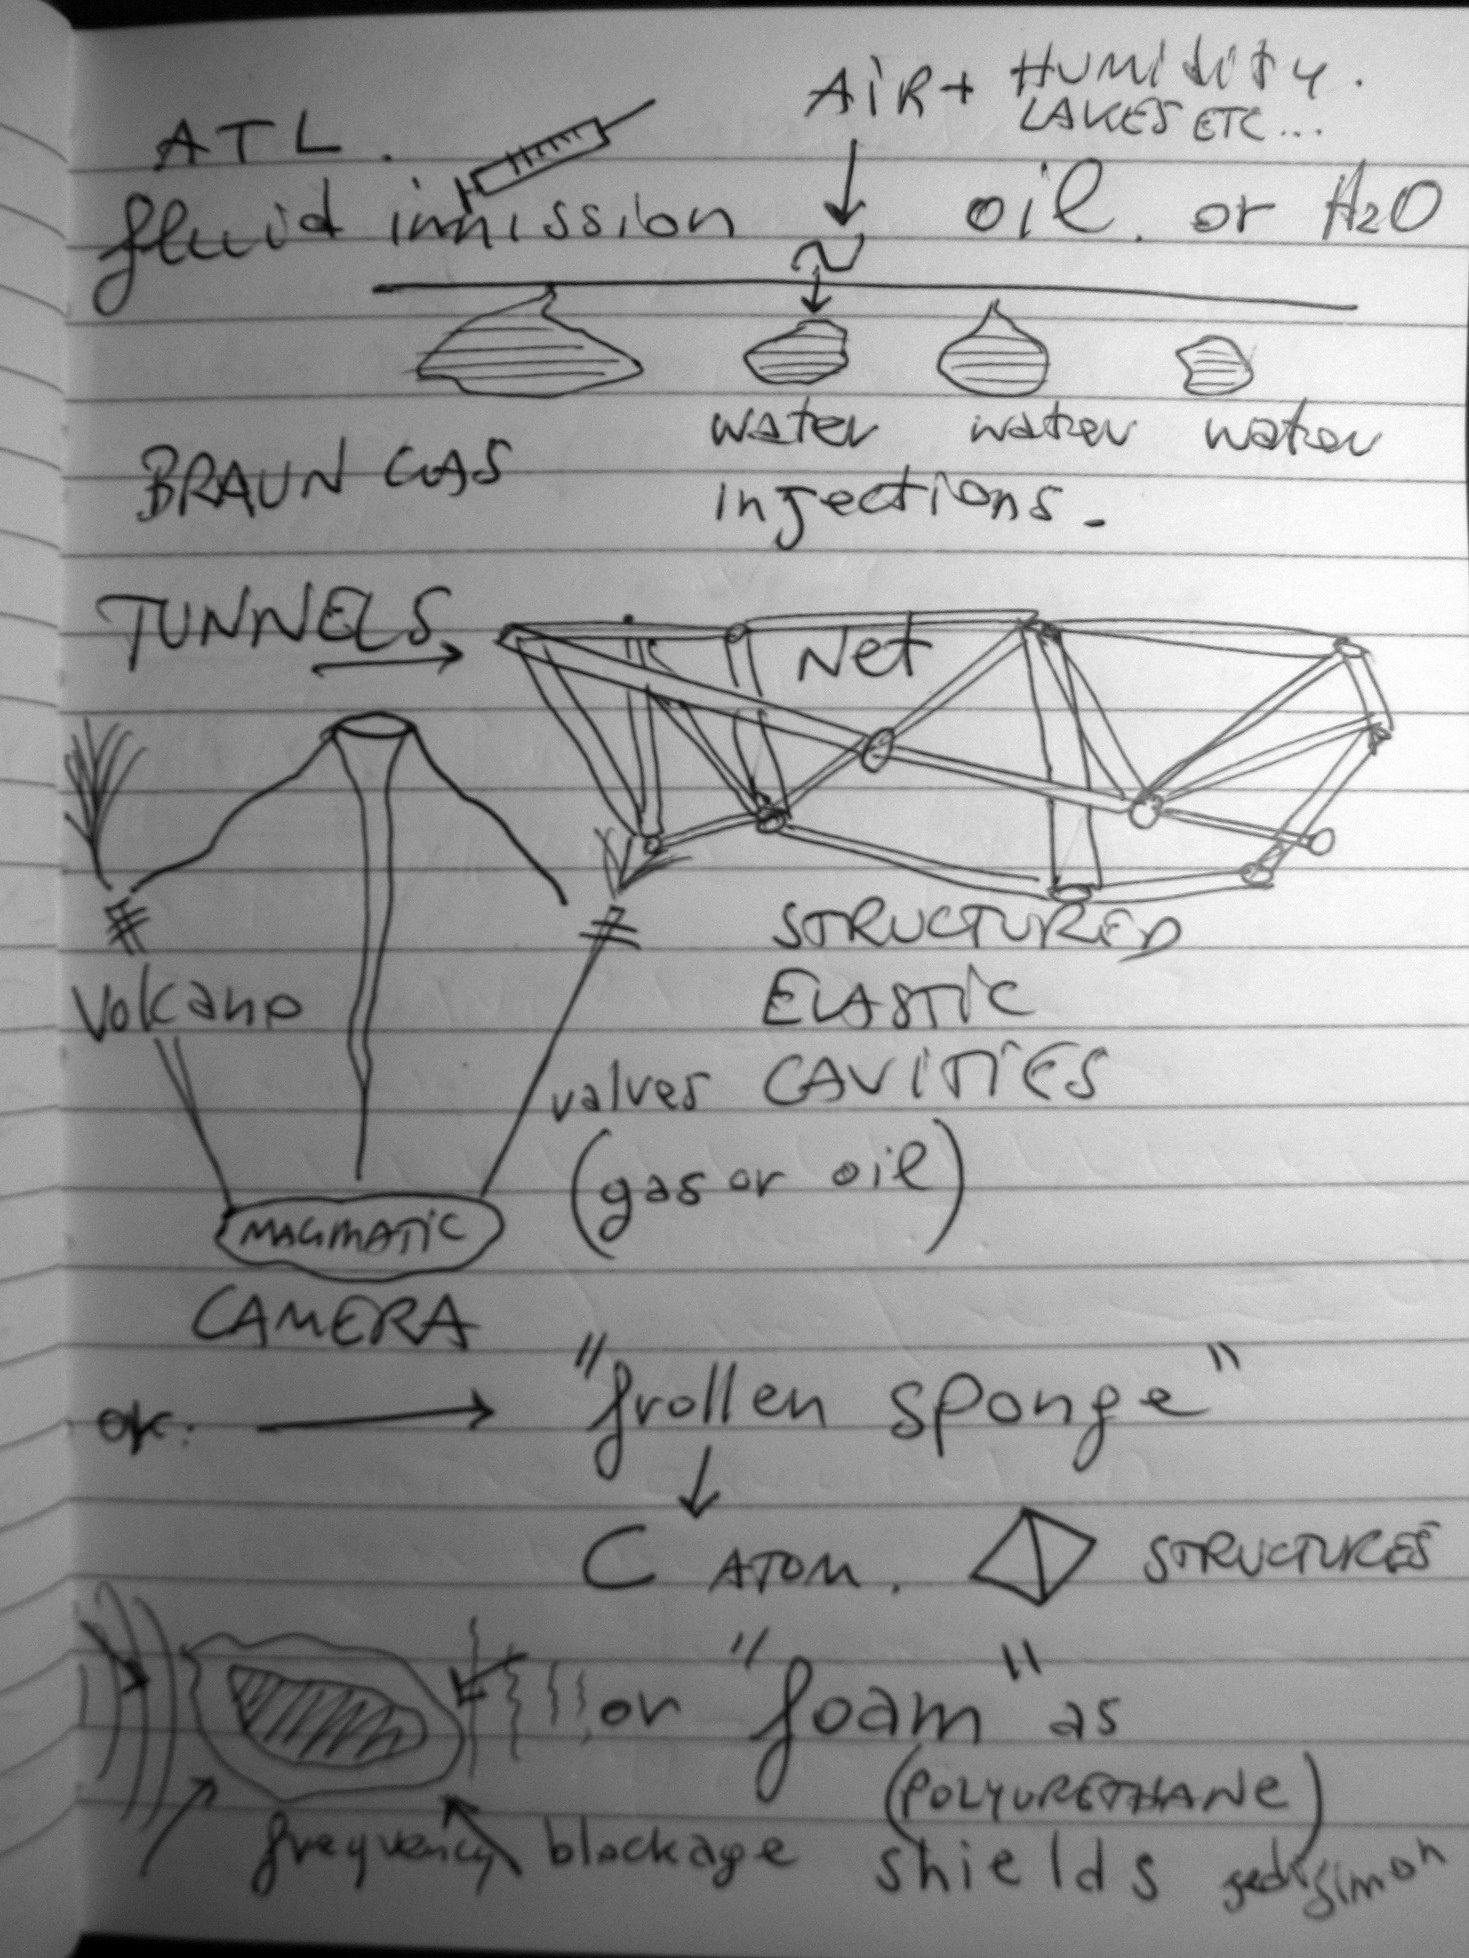 AIR + HUMIDITY.
LAKES ETC...
ATL.
fluid inmission
oil. or H2O
water water water
BRAUN GAS
injections.
TUNNELS
Net
STRUCTURED
ELASTIC
CAVITIES
Volcano
valves
(gas or oil)
MAGMATIC
CAMERA
or:
"frollen sponge"
C ATOM.
STRUCTURES
or "foam" as
(POLYURETHANE)
frequency blockage shields
simon